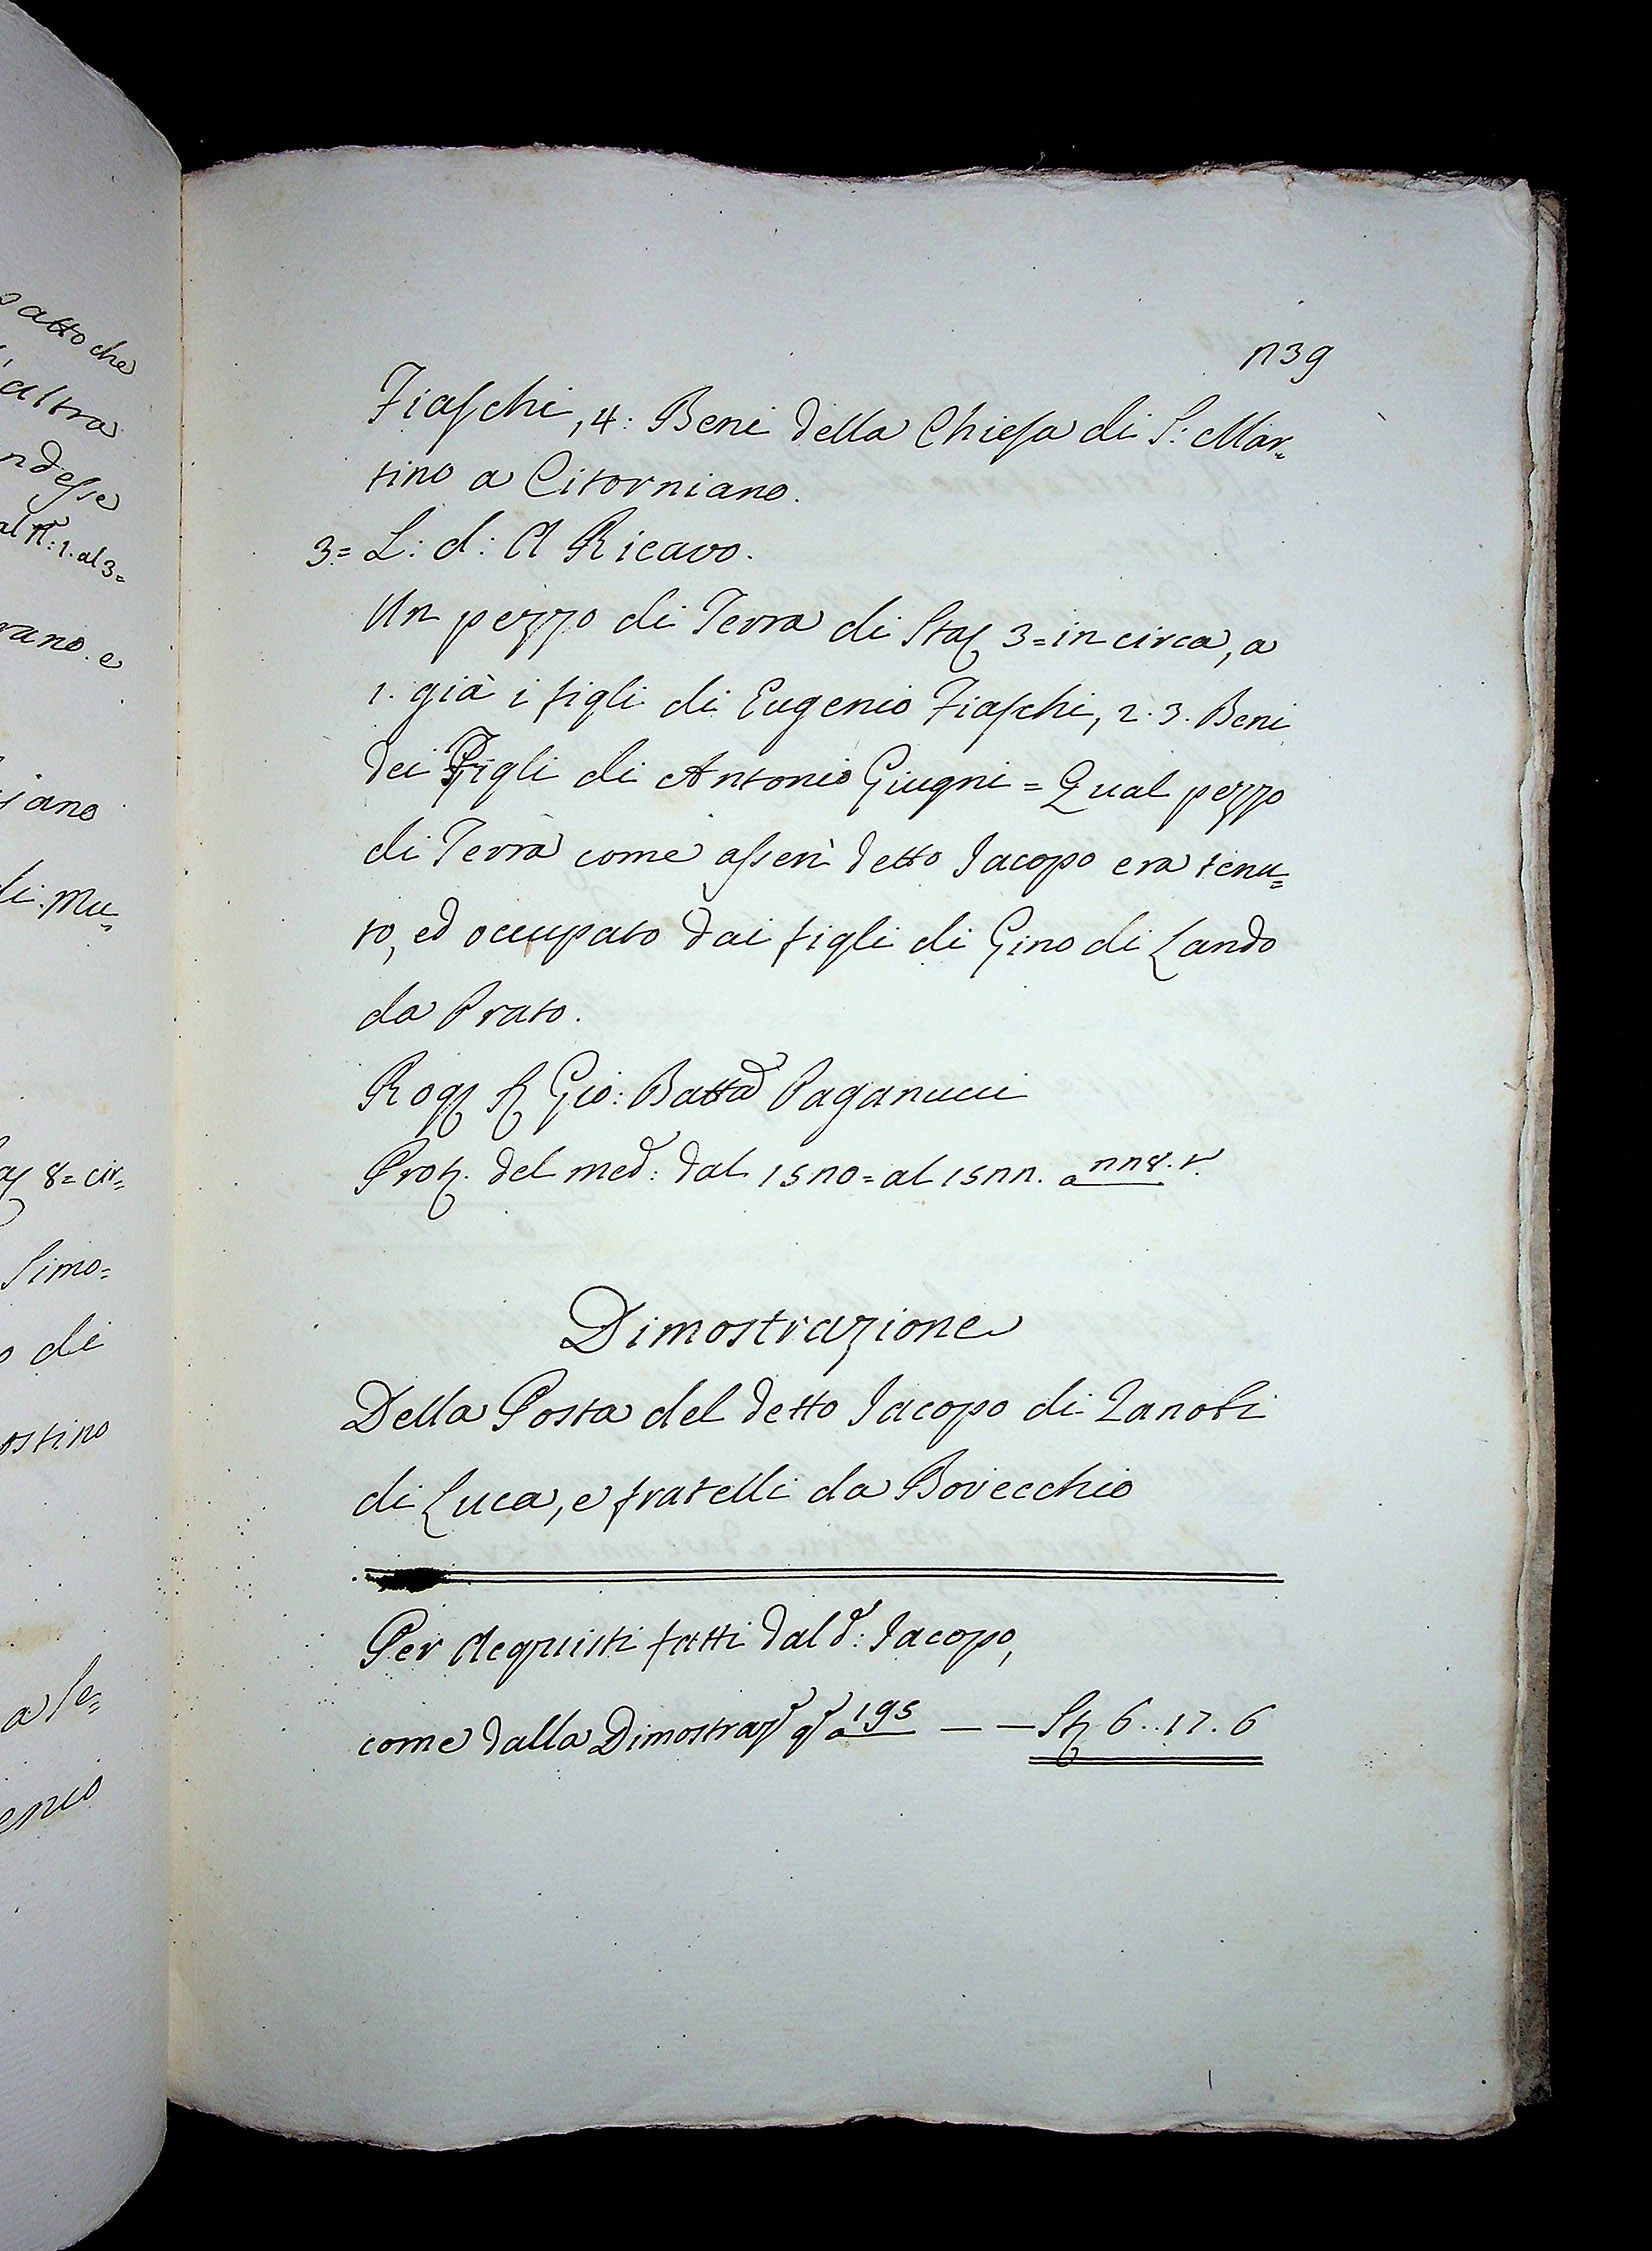 patto che
altra
ndesse
al N.: 1. al 3=
rano. e
iano
di Mu=
8= cir=
Simo=
o di
ostino
a Se=
enio
239
Fiaschi, 4: Beni della Chiesa di S: Mar=
tino a Citorniano.
3= L: d: A Ricavo.
Un pezzo di Terra di Sta 3= in circa, a
1. già i figli di Eugenio Fiaschi, 2. 3. Beni
dei Figli di Antonio Giugni = Qual pezzo
di Terra come asserì detto Jacopo era tenu=
to, ed occupato dai figli di Gino di Lando
da Prato.
Rog S Gio: Batta Paganucci
Prot. del med: dal 1520= al 1522. a 228. t.
Dimostrazione
Della Posta del detto Jacopo di Zanobi
di Luca, e fratelli da Bovecchio
Per Acquisti fatti dal d: Jacopo,
come dalla Dimostraz q a 195 — — S 6..17.6